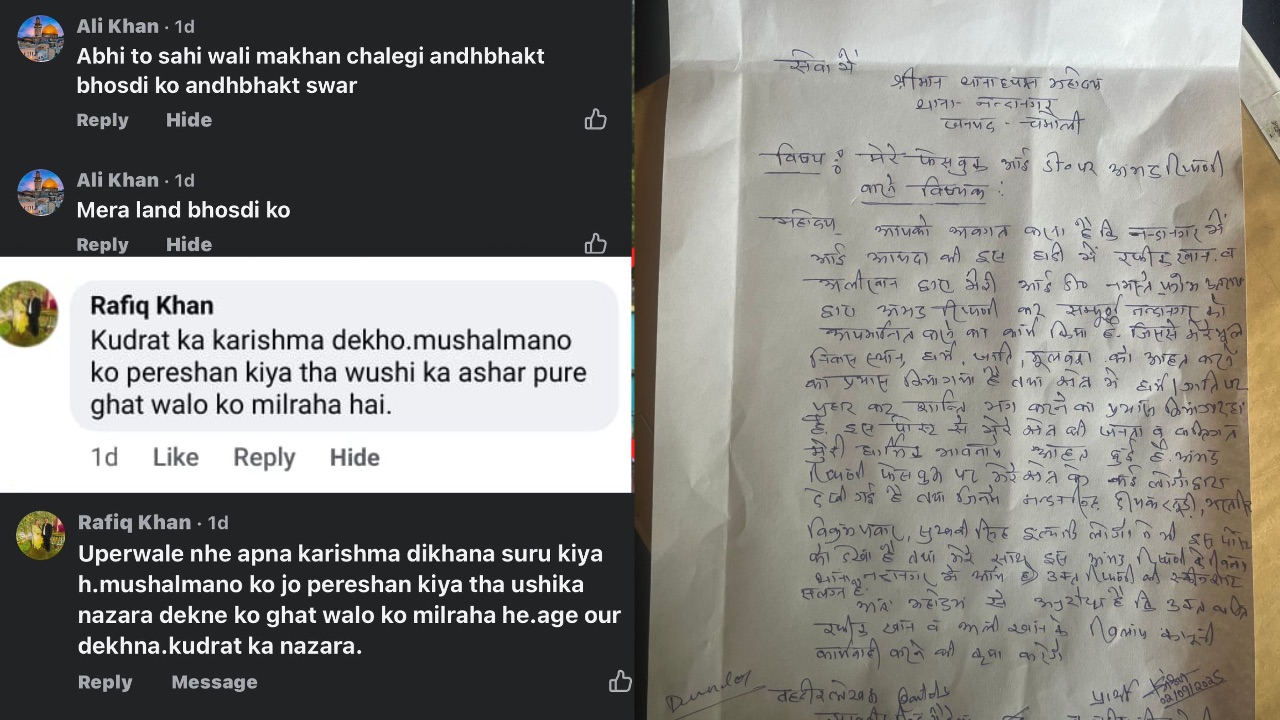 Ali Khan · 1d
Abhi to sahi wali makhan chalegi andhbhakt
bhosdi ko andhbhakt swar
Reply Hide
Ali Khan · 1d
Mera land bhosdi ko
Reply Hide
Rafiq Khan
Kudrat ka karishma dekho.mushalmano
ko pereshan kiya tha wushi ka ashar pure
ghat walo ko milraha hai.
1d Like Reply Hide
Rafiq Khan · 1d
Uperwale nhe apna karishma dikhana suru kiya
h.mushalmano ko jo pereshan kiya tha ushika
nazara dekne ko ghat walo ko milraha he.age our
dekhna.kudrat ka nazara.
Reply Message
सेवा में
श्रीमान थानाध्यक्ष महोदय
थाना- नन्दानगर
जनपद - चमोली
विषय : मेरे फेसबुक आई डी० पर अभद्र टिप्पणी
करने विषयक :
महोदय
आपको अवगत कराना है कि नन्दानगर में
आई आपदा की इस घड़ी में रफीक खान व
अलीखान द्वारा मेरी आई डी०
द्वारा अभद्र टिप्पणी कर सम्पूर्ण नन्दानगर को
अपमानित करने का कार्य किया है. जिससे मेरे मूल
निवास स्थान, धर्म, जाति, मूलवंश को आहत करने
का प्रयास किया गया है तथा क्षेत्र में धर्म जाति पर
प्रहार कर शान्ति भंग करने का प्रयास किया जा रहा
है. इस पोस्ट से मेरे क्षेत्र की जनता व
मेरी धार्मिक भावनाएं आहत हुई है. अभद्र
टिप्पणी फेसबुक पर मेरे क्षेत्र के कई लोगों द्वारा
देखी गई है तथा जिनमें
इत्यादि लोगों ने भी इस पोस्ट
को देखा है तथा मेरे साथ इस अभद्र टिप्पणी के
थाना नन्दानगर में आये हैं उक्त टिप्पणी की स्क्रीनशॉट
संलग्न है.
अतः महोदय से अनुरोध है कि उक्त व्यक्ति
रफीक खान व अली खान के खिलाफ कानूनी
कार्यवाही करने की कृपा करेंगे
तहरीर लेखक
प्रार्थी
02/09/2025